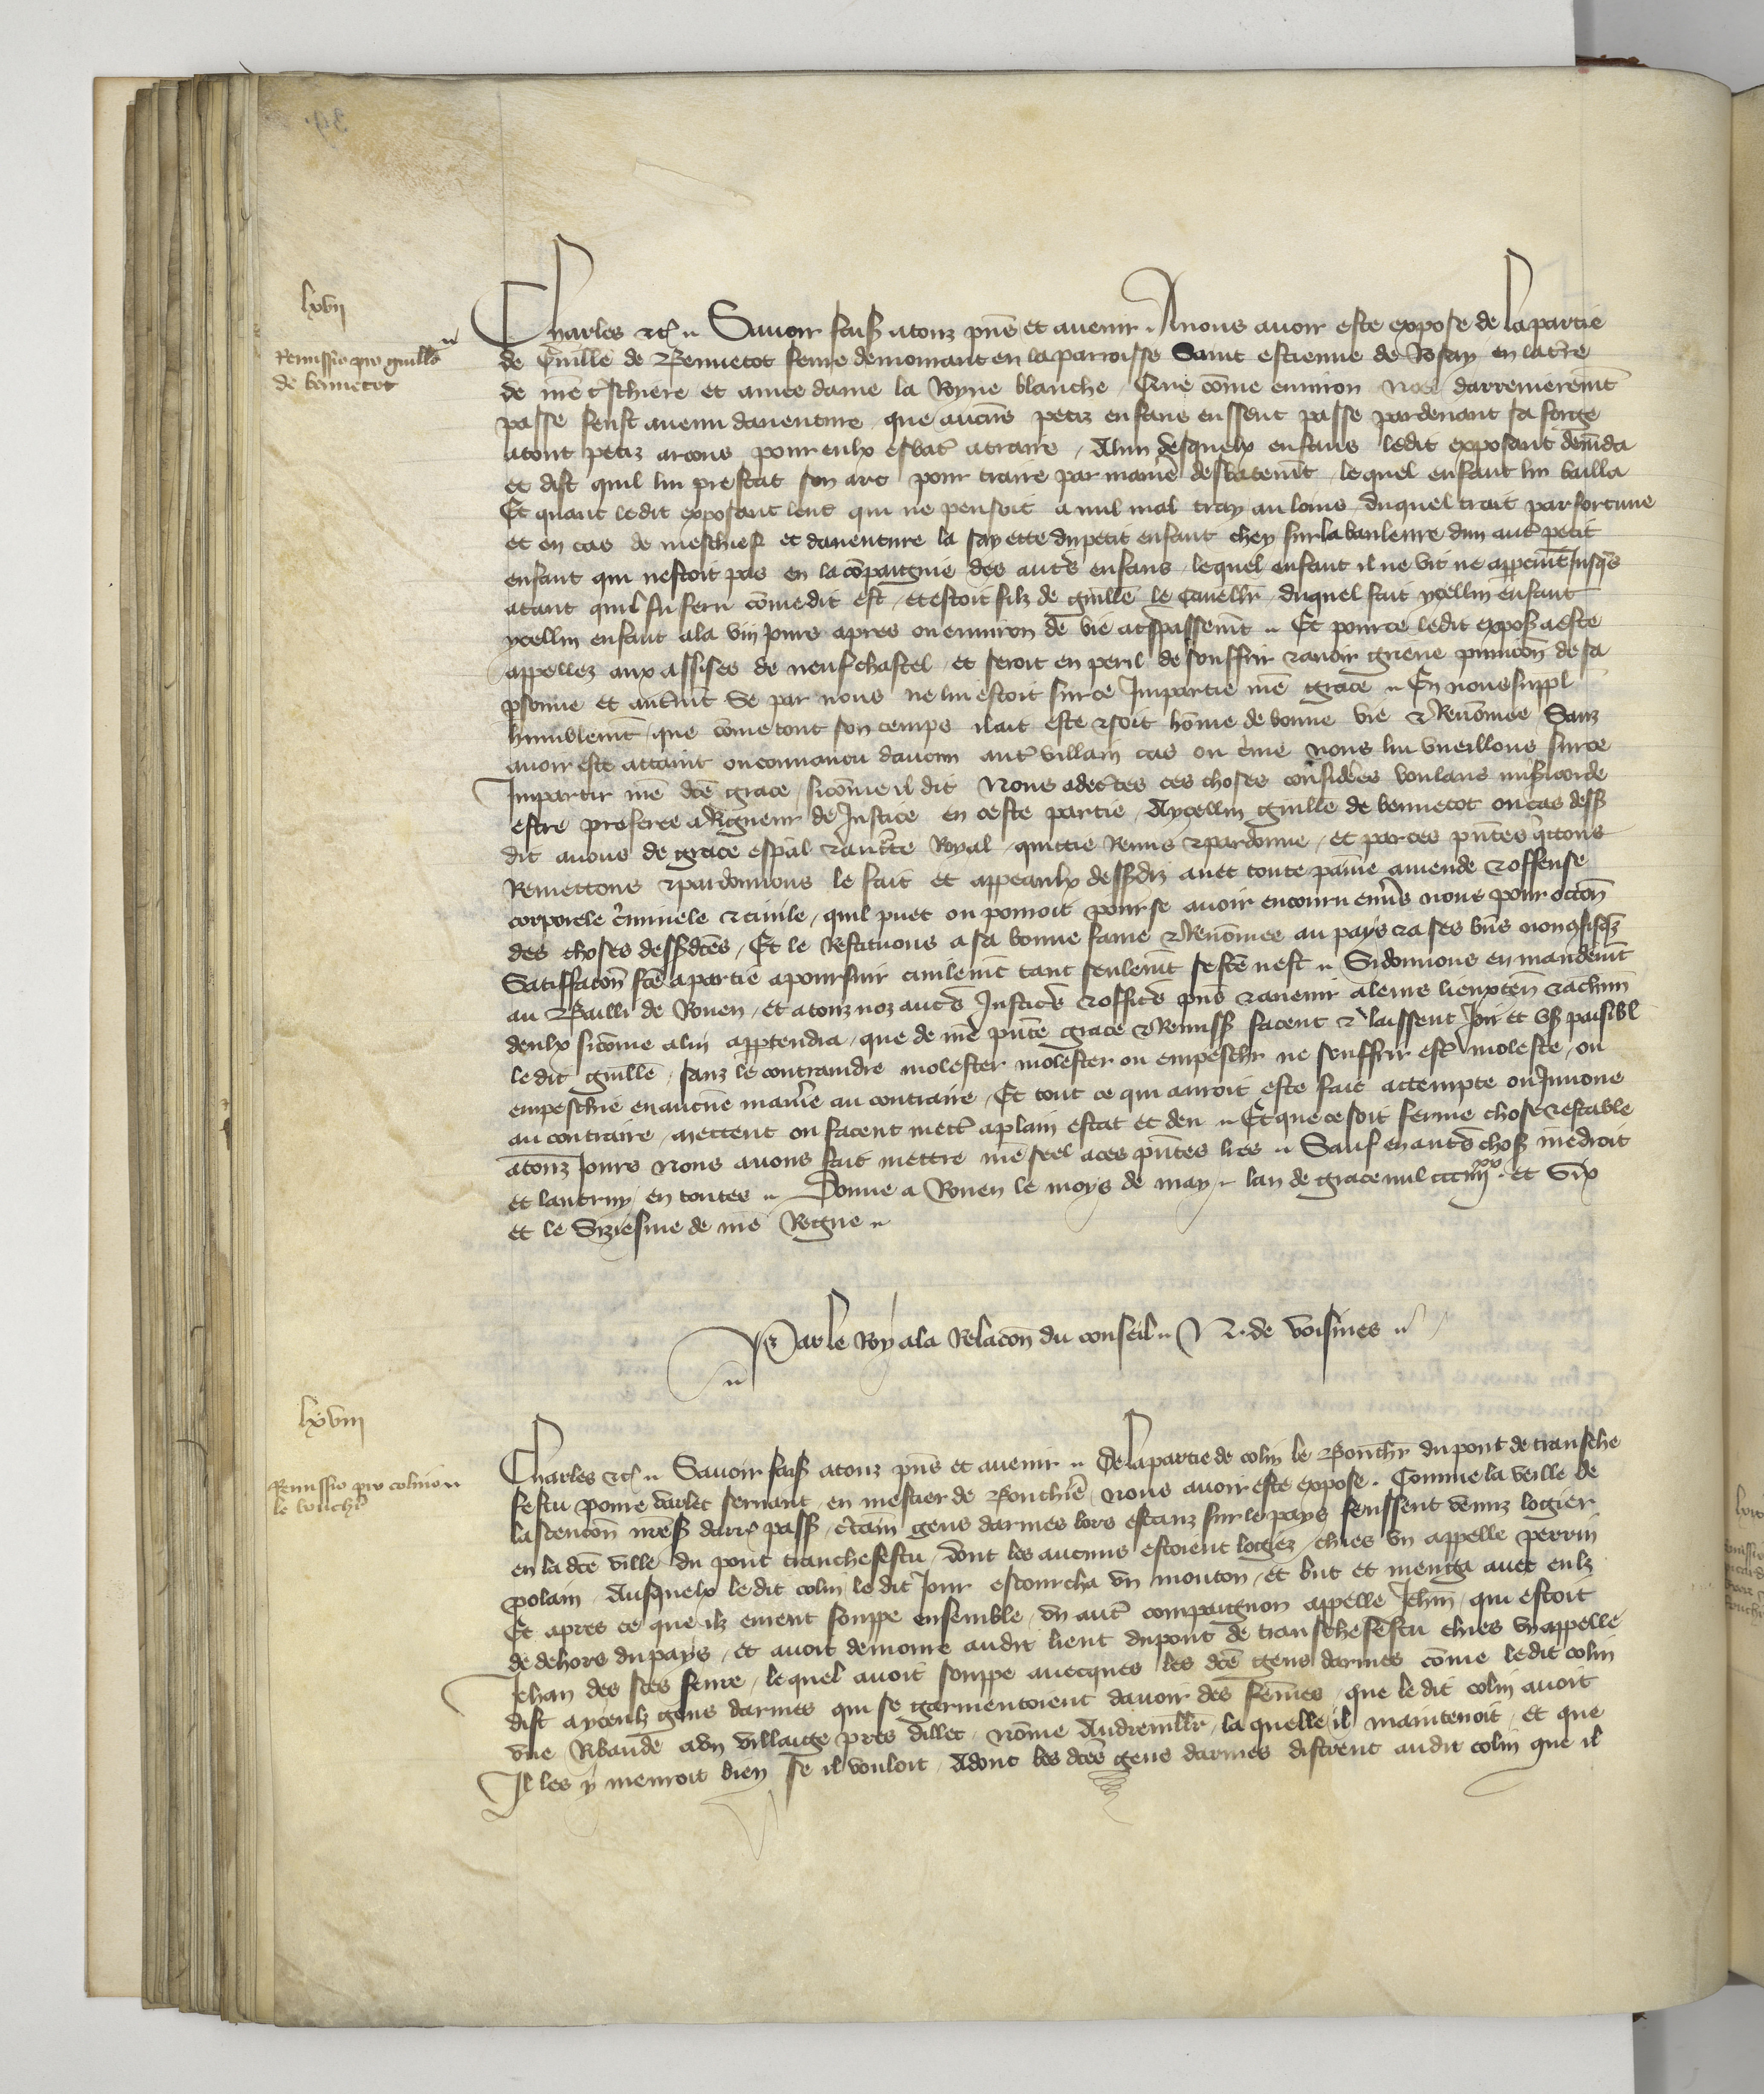 lxvii
Remissio pro guillo
de bennetot
Charles etc. Savoir fais atouz pñs et avenir. Anous avoir este expose de la partie
de Guille de Bennetot fevre demourant en la parroisse Saint estienne de Rosay en la tr̃e
de nr̃e tschiere et amee dame la Royne blanche. Que cõme environ noel darrenierem̃t
passe feust avenu daventure que aucũs petiz enfans eussent passe pardevant sa forge
atout petiz arcons pour eulx esbat̃ atraire. Alun desquelx enfans ledit exposant dem̃da
et dist quil lui prestat son arc pour traire par manie desbatem̃t lequel enfant lui bailla
Et quant ledit exposant leut qui ne pensoit a nul mal tray au loins duquel trait par fortune
et en cas de meschief et daventure la sayette du petit enfant chey sur la banleure dun aut̃ petit
enfant qui nestoit pas en la cõpaignie des aut̃s enfans lequel enfant il ne vit ne apperceut Jusqs
atant quil fu feru cõme dit est et estoit filz de guille le Cavellr̃ duquel fait ycellui enfant
ycellui enfant ala viij Jours apres ou environ de vie atspassem̃t. Et pource ledit expos̃ a este
appellez aux assises de neufchastel et seroit en peril de souffrir et avoir grieve punicõn de sa
psonne et autm̃t Se par nous ne lui estoit sur ce Impartie nr̃e grace. En nous suppl
humblem̃t que cõme tout son temps il ait este et soit hõme de bonne vie et Renõmee Sanz
avoir este attaint ou convaincu daucun aut̃ villain cas ou cr̃me nous lui vueillons sur ce
Impartir nr̃e dc̃e grace sicõme il dit Nous adec̃tes ces choses considerees voulans mis̃icorde
estre preferee a Rigueur de Justice en ceste partie Aycellui guille de bennetot ou cas dess̃
dit avons de grace esp̃al et auct̃te Royal quittie Remis et pardonne et par ces pñtes qictons
Remettons et pardonnons le fait et appeaulx dess̃diz avec toute painne amende et offense
corporele c̃iminele et civile quil puet ou pourroit pour ce avoir encouru env̾s nous pour occõn
des choses dess̃dc̃es Et le Restituons a sa bonne fame et Renõmee au pays et a ses biñs non 9fisq̃z
Satisfacõn fc̃e a partie apoursuir civilem̃t tant seulem̃t se fc̃e nest. Sidonnons en mandem̃t
au Bailli de Rouen et atouz noz aut̃s Justic̃s et offic̃s pñs et avenir aleurs lieuxteñ et achũn
deulx sicõme alui appartendra que de nr̃e pñte grace et Remiss̃ facent et laissent Joir et us̃ paisibl
ledit guille sanz le contraindre molester molester ou empeschr̃ ne souffrir est̃ moleste ou
empeschie en aucũe manie au contraire Et tout ce qui auroit este fait attempte ou Innove
au contraire mettent ou facent mett̃ aplain estat et deu. Et que ce soit ferme chose et estable
atouz Jours Nous avons fait mettre nr̃e seel aces pñtes lr̃es. Sauf en aut̃s chos̃ nr̃e droit
et lautruy en toutes. Donne a Rouen le moys de may lan de grace mil ccciiiixx et Six
et le Siziesme de nr̃e Regne.
Par le Roy ala Relacõn du conseil. N. de voisines.
lxviii
Remissio pro colino
le bouchr̃
Charles etc. Savoir fais atouz pñs et avenir. De la partie de colin le Bouchr̃ du pont de transche
festu povre varlet servant en mestier de Boucherie nous avoir este expose. Comme la veille de
lascencõn nr̃e s̃ darr̃ pass̃ c̃tain gens darmes lors estanz sur le pays feussent venuz logier
en la dc̃e ville du pont tranchefestu dont les aucuns estoient logez chies un appelle perrin
polain Ausquelx ledit colin ledit Jour escourcha un mouton et but et menga avec eulz
Et apres ce que ilz eurent souppe ensemble un aut̃ compaignon appelle Jehan qui estoit
de dehors du pays et avoit demoure audit lieu du pont de transchefestu chies un appelle
Jehan des fc̃es fevre lequel avoit souppe avecques les dc̃es gens darmes cõme ledit colin
dist ayceulz gens darmes qui se garmentoient davoir des fem̃es que le dit colin avoit
une Ribaude a un villaige pres dillec nõme Andrevillr̃ la quelle il maintenoit et que
Il les y menroit bien se il vouloit Adont les dc̃es gens darmes distrent audit colin que il